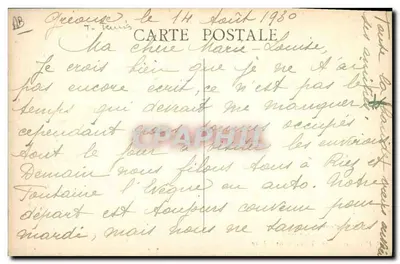 Gréoux, le 14 Août 1930
CARTE POSTALE
Ma chère Marie-Louise,
Je crois bien que je ne t'ai
pas encore écrit, ce n'est pas le
temps qui devrait me manquer
cependant nous sommes occupés
tout le jour à visiter les environs
Demain nous filons tous à Riez et
Fontaine l'Evêque en auto. Notre
départ est toujours convenu pour
mardi, mais nous ne savons pas
CPAPHIL
Toute la
ses amitiés